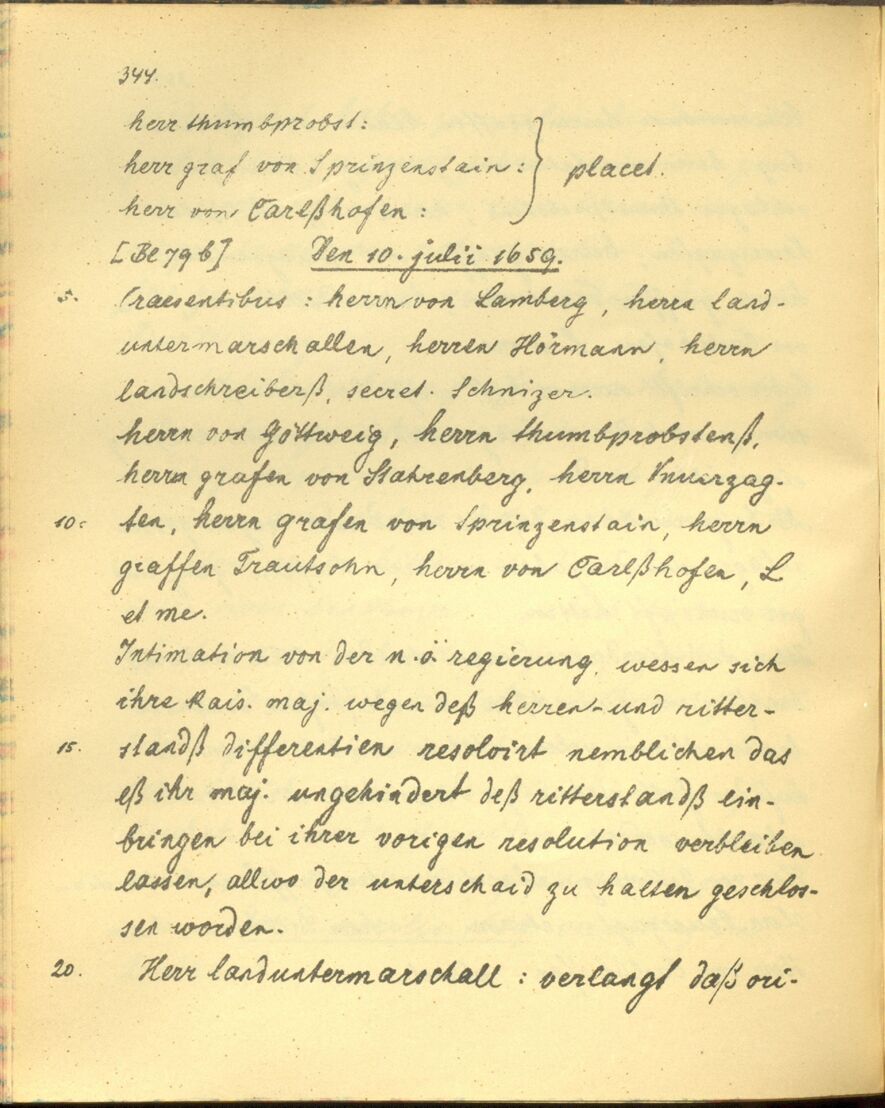 344.
herr thumbprobst:
herr graf von Sprinzenstain: } placet.
herr von Carlßhofen:
[Bl 79b] Den 10. julii 1659.
5. Praesentibus: herrn von Lamberg, herrn land-
untermarschallen, herren Hörmann, herrn
landschreiberß, secret. Schnizer.
herrn von Göttweig, herrn thumbprobstenß,
herrn grafen von Stahrenberg, herrn Vnuerzag-
10. ten, herrn grafen von Sprinzenstain, herrn
graffen Trautsohn, herrn von Carlßhofen, L
et me.
Intimation von der n.ö. regierung, wessen sich
ihre kais. maj. wegen deß herren- und ritter-
15. standß differentien resolvirt nemblichen das
eß ihr maj. ungehindert deß ritterstandß ein-
bringen bei ihrer vorigen resolution verbleiben
lassen, allwo der unterschaid zu halten geschlos-
sen worden.
20. Herr landuntermarschall: verlangt daß ori-